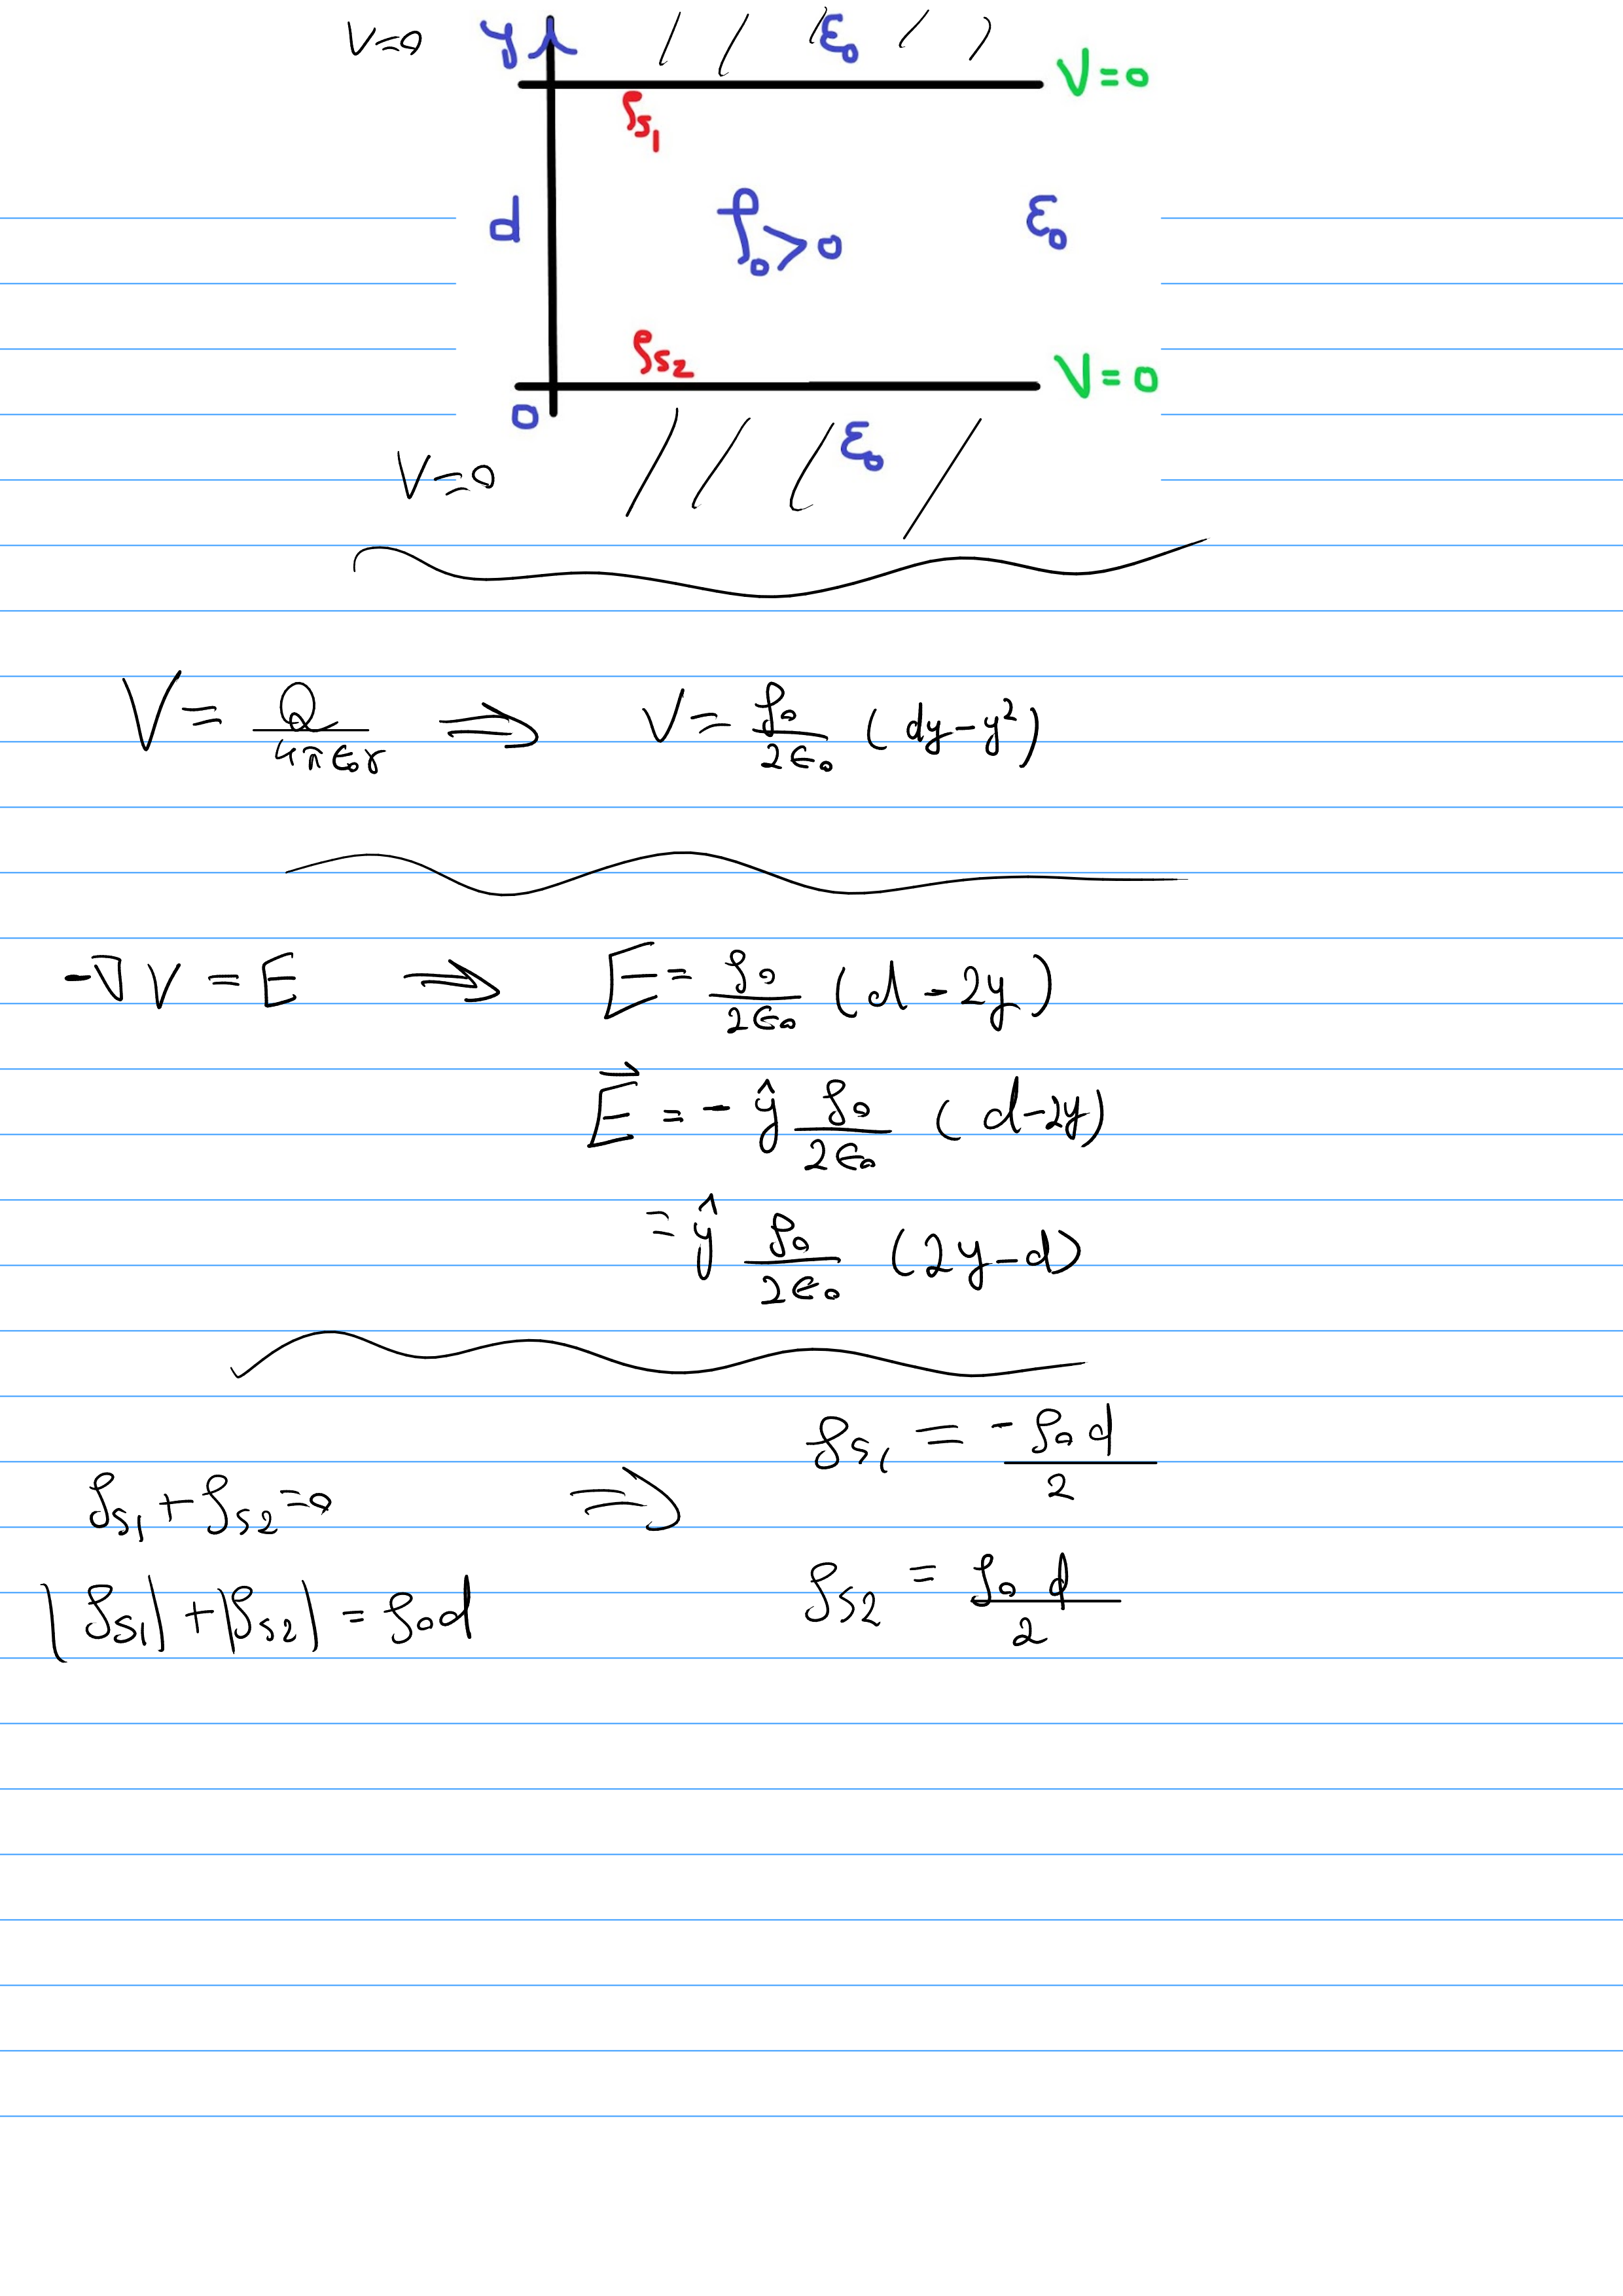 V=0 y ε₀ V=0
ρs₁
d ρ₀>0 ε₀
ρs₂ V=0
0 ε₀
V=0
V = Q/(4πϵ₀r) ⟹ V = ρ₀/(2ϵ₀) (dy-y²)
-∇V = E ⟹ E = ρ₀/(2ϵ₀) (d-2y)
E⃗ = -ŷ ρ₀/(2ϵ₀) (d-2y)
= ŷ ρ₀/(2ϵ₀) (2y-d)
ρs₁ = -ρ₀d/2
ρs₁+ρs₂=0 ⟹
ρs₂ = ρ₀d/2
|ρs₁|+|ρs₂| = ρ₀d